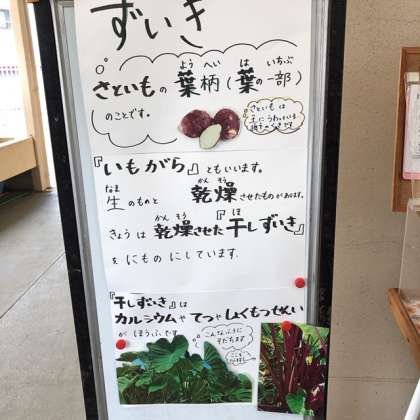 ずいき
さといもの葉柄(葉の一部)
ようへい は いちぶ
のことです。
さといもは
『いもがら』ともいいます。
なま かんそう
生のものと 乾燥させたものがあります。
かんそう ほ
きょうは乾燥させた『干しずいき』
をにものにしています。
『干しずいき』は
カルシウムやてつやしょくもつせんい
がほうふです。
こんなふうに
そだちます
ここを